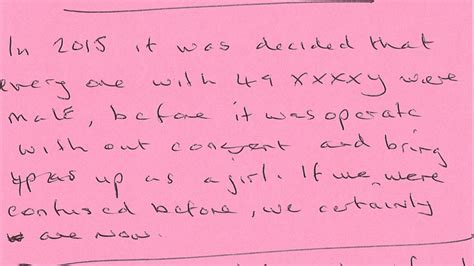 In 2015 it was decided that
every one with 49 XXXXY were
male, before it was operate
with out consent and bring
up as a girl. If we were
confused before, we certainly
are now.